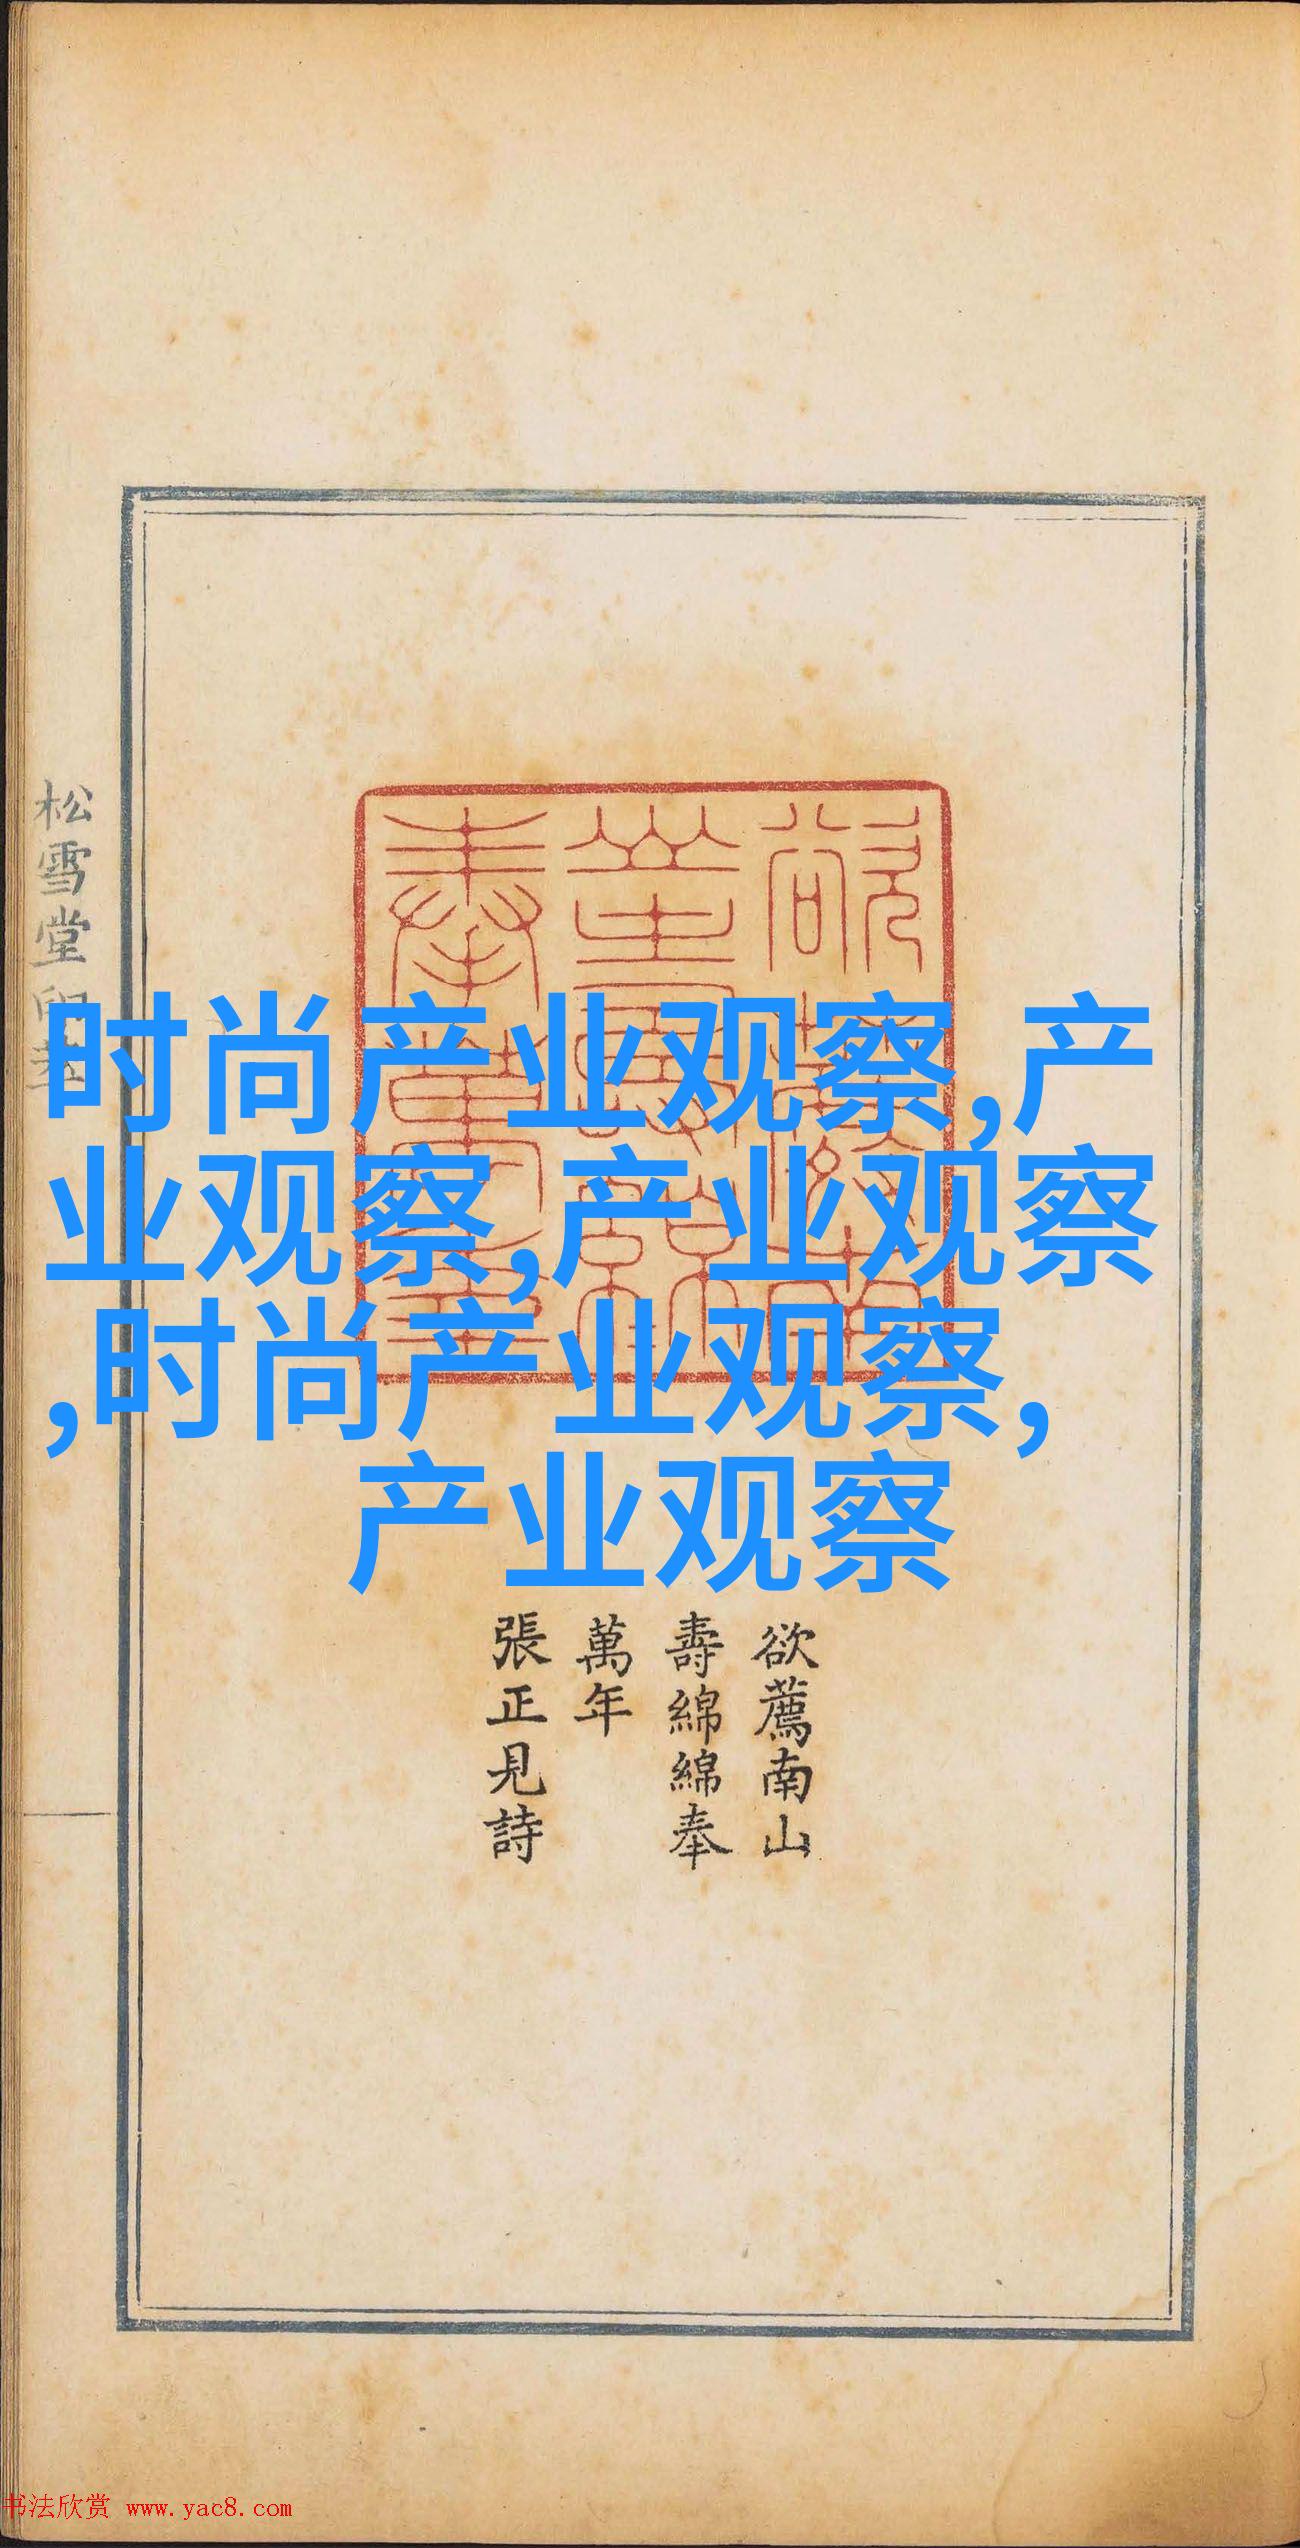 松雪堂印萃
时尚产业观察,产
业观察,产业观察
,时尚产业观察,
产业观察
欲薦南山
壽綿綿奉
萬年
張正見詩
书法欣赏 www.yac8.com